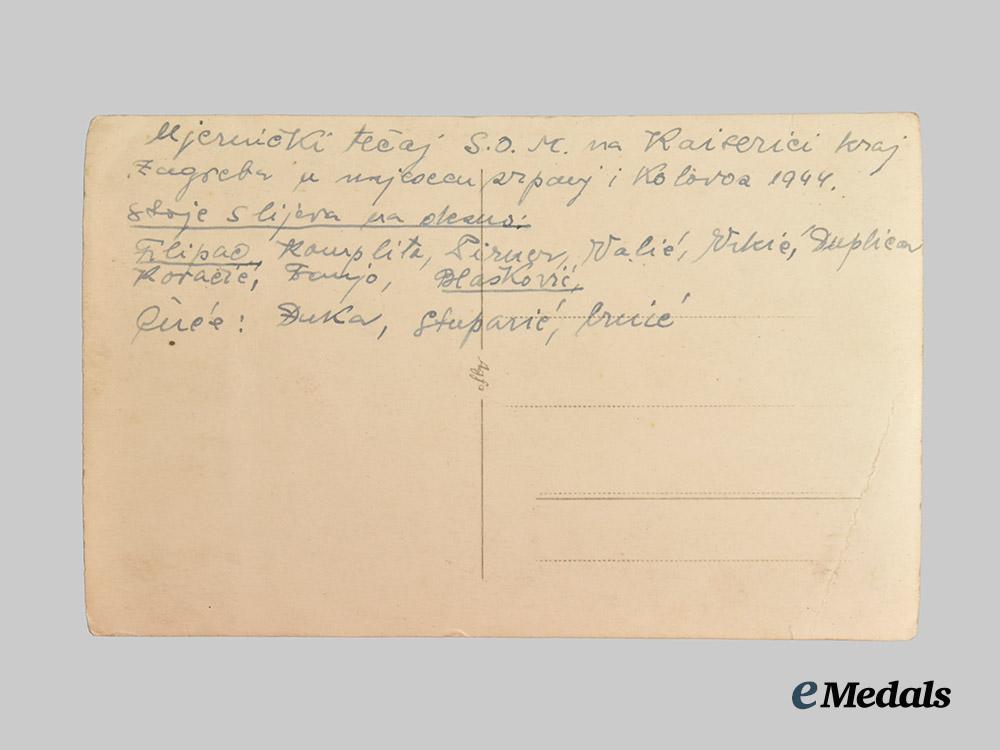 Mjernički tečaj S.O.M. na Kaiserici kraj
Zagreba u srpanj i Kolovoz 1944.
stoje s lijeva na desno:
Filipac, Komplita, Pirner, Valić, Vrkić, Duplica
Kovačić, Franjo, Blašković,
Čuče: Duka, Stuparić,
Agfa
eMedals